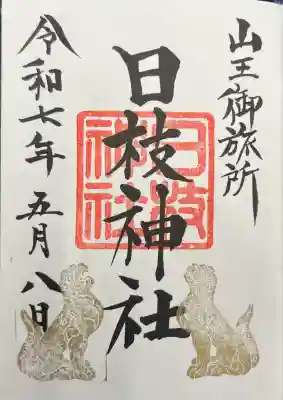 山王御旅所
日枝神社
日枝神社
令和七年五月八日